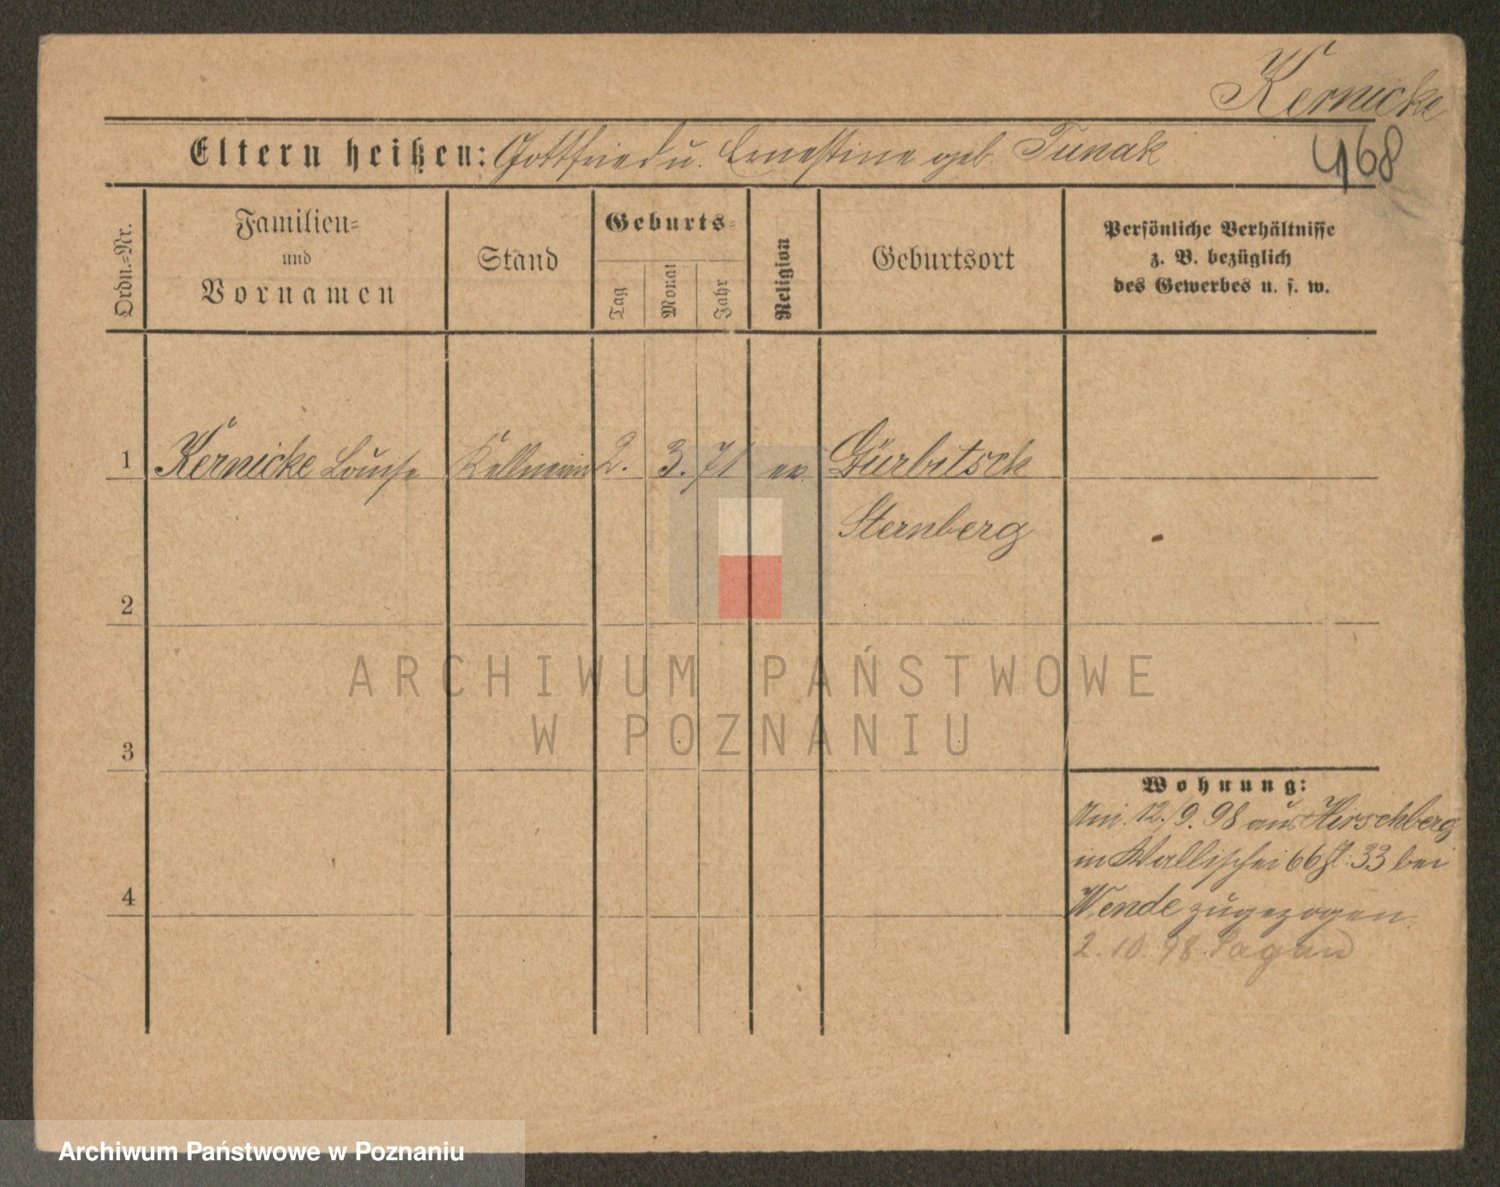 Kernicke
4168
Eltern heißen: Gottfried u. Ernestine geb. Tunak
Ordn.-Nr.
Familien-
und
Vornamen
Stand
Geburts-
Tag
Monat
Jahr
Religion
Geburtsort
Persönliche Verhältnisse
z. B. bezüglich
des Gewerbes u. s. w.
1 Kernicke Louise Kellnerin 2. 3. 71 ev Görbitsch
Sternberg
2
3
4
Wohnung:
Am 12./9. 98 aus Hirschberg
in Wallischei 66 33 bei
Wende zugezogen
2. 10. 98. Sagan
ARCHIWUM PAŃSTWOWE
W POZNANIU
Archiwum Państwowe w Poznaniu